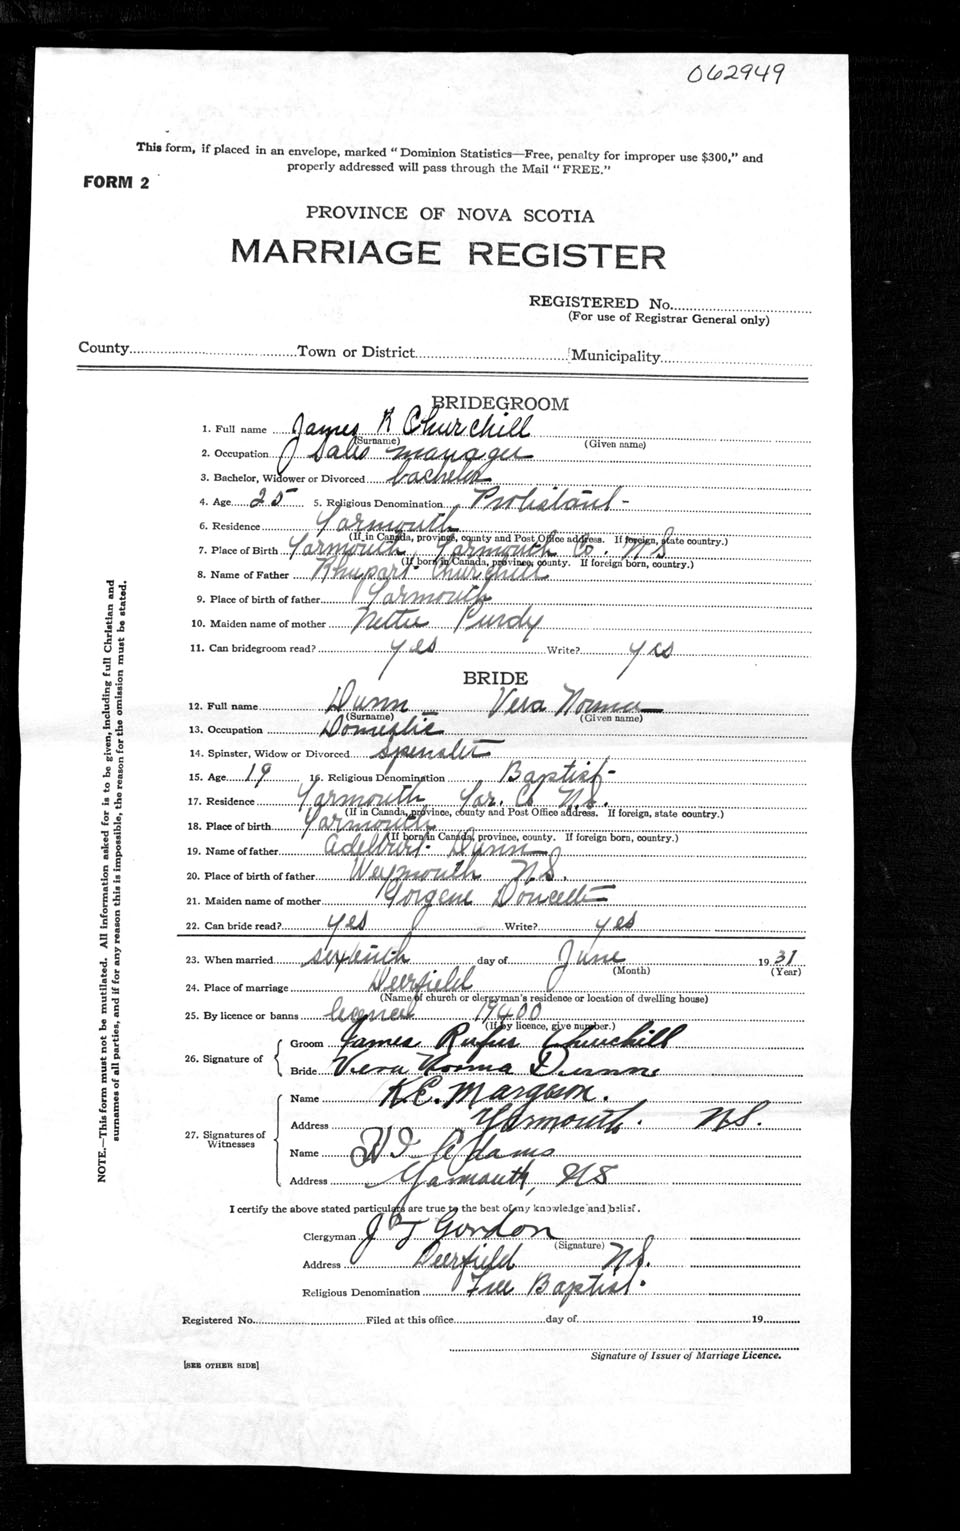 062949
This form, if placed in an envelope, marked "Dominion Statistics—Free, penalty for improper use $300," and
properly addressed will pass through the Mail "FREE."
FORM 2
PROVINCE OF NOVA SCOTIA
MARRIAGE REGISTER
REGISTERED No.
(For use of Registrar General only)
County Town or District Municipality
BRIDEGROOM
1. Full name James R Churchill
(Surname) (Given name)
2. Occupation Sales manager
3. Bachelor, Widower or Divorced bachelor
4. Age 25 5. Religious Denomination Protestant -
6. Residence Yarmouth
(If in Canada, province, county and Post Office address. If foreign, state country.)
7. Place of Birth Yarmouth Yarmouth Co. NS
(If born in Canada, province, county. If foreign born, country.)
8. Name of Father Churchill
9. Place of birth of father Yarmouth
10. Maiden name of mother Nettie Purdy
11. Can bridegroom read? yes Write? yes
BRIDE
12. Full name Dunn Vera Norma
(Surname) (Given name)
13. Occupation Domestic
14. Spinster, Widow or Divorced Spinster
15. Age 19 16. Religious Denomination Baptist -
17. Residence Yarmouth Yar. Co N.S.
(If in Canada, province, county and Post Office address. If foreign, state country.)
18. Place of birth Yarmouth
(If born in Canada, province, county. If foreign born, country.)
19. Name of father Adelbert Dunn
20. Place of birth of father Weymouth N.S.
21. Maiden name of mother Gorgene Doucette
22. Can bride read? yes Write? yes
23. When married sixteenth day of June 1931
(Month) (Year)
24. Place of marriage Deerfield
(Name of church or clergyman's residence or location of dwelling house)
25. By licence or banns licence 19400
(If by licence, give number.)
26. Signature of Groom James Rufus Churchill
Bride Vera Norma Dunn
27. Signatures of Witnesses
Name K.E. Margeson.
Address Yarmouth. N.S.
Name Adams
Address Yarmouth, NS
I certify the above stated particulars are true to the best of my knowledge and belief.
Clergyman J T Gordon
(Signature)
Address Deerfield N.S.
Religious Denomination Free Baptist.
Registered No. Filed at this office day of 19
Signature of Issuer of Marriage Licence.
[SEE OTHER SIDE]
NOTE.—This form must not be mutilated. All information asked for is to be given, including full Christian and
surnames of all parties, and if for any reason this is impossible, the reason for the omission must be stated.